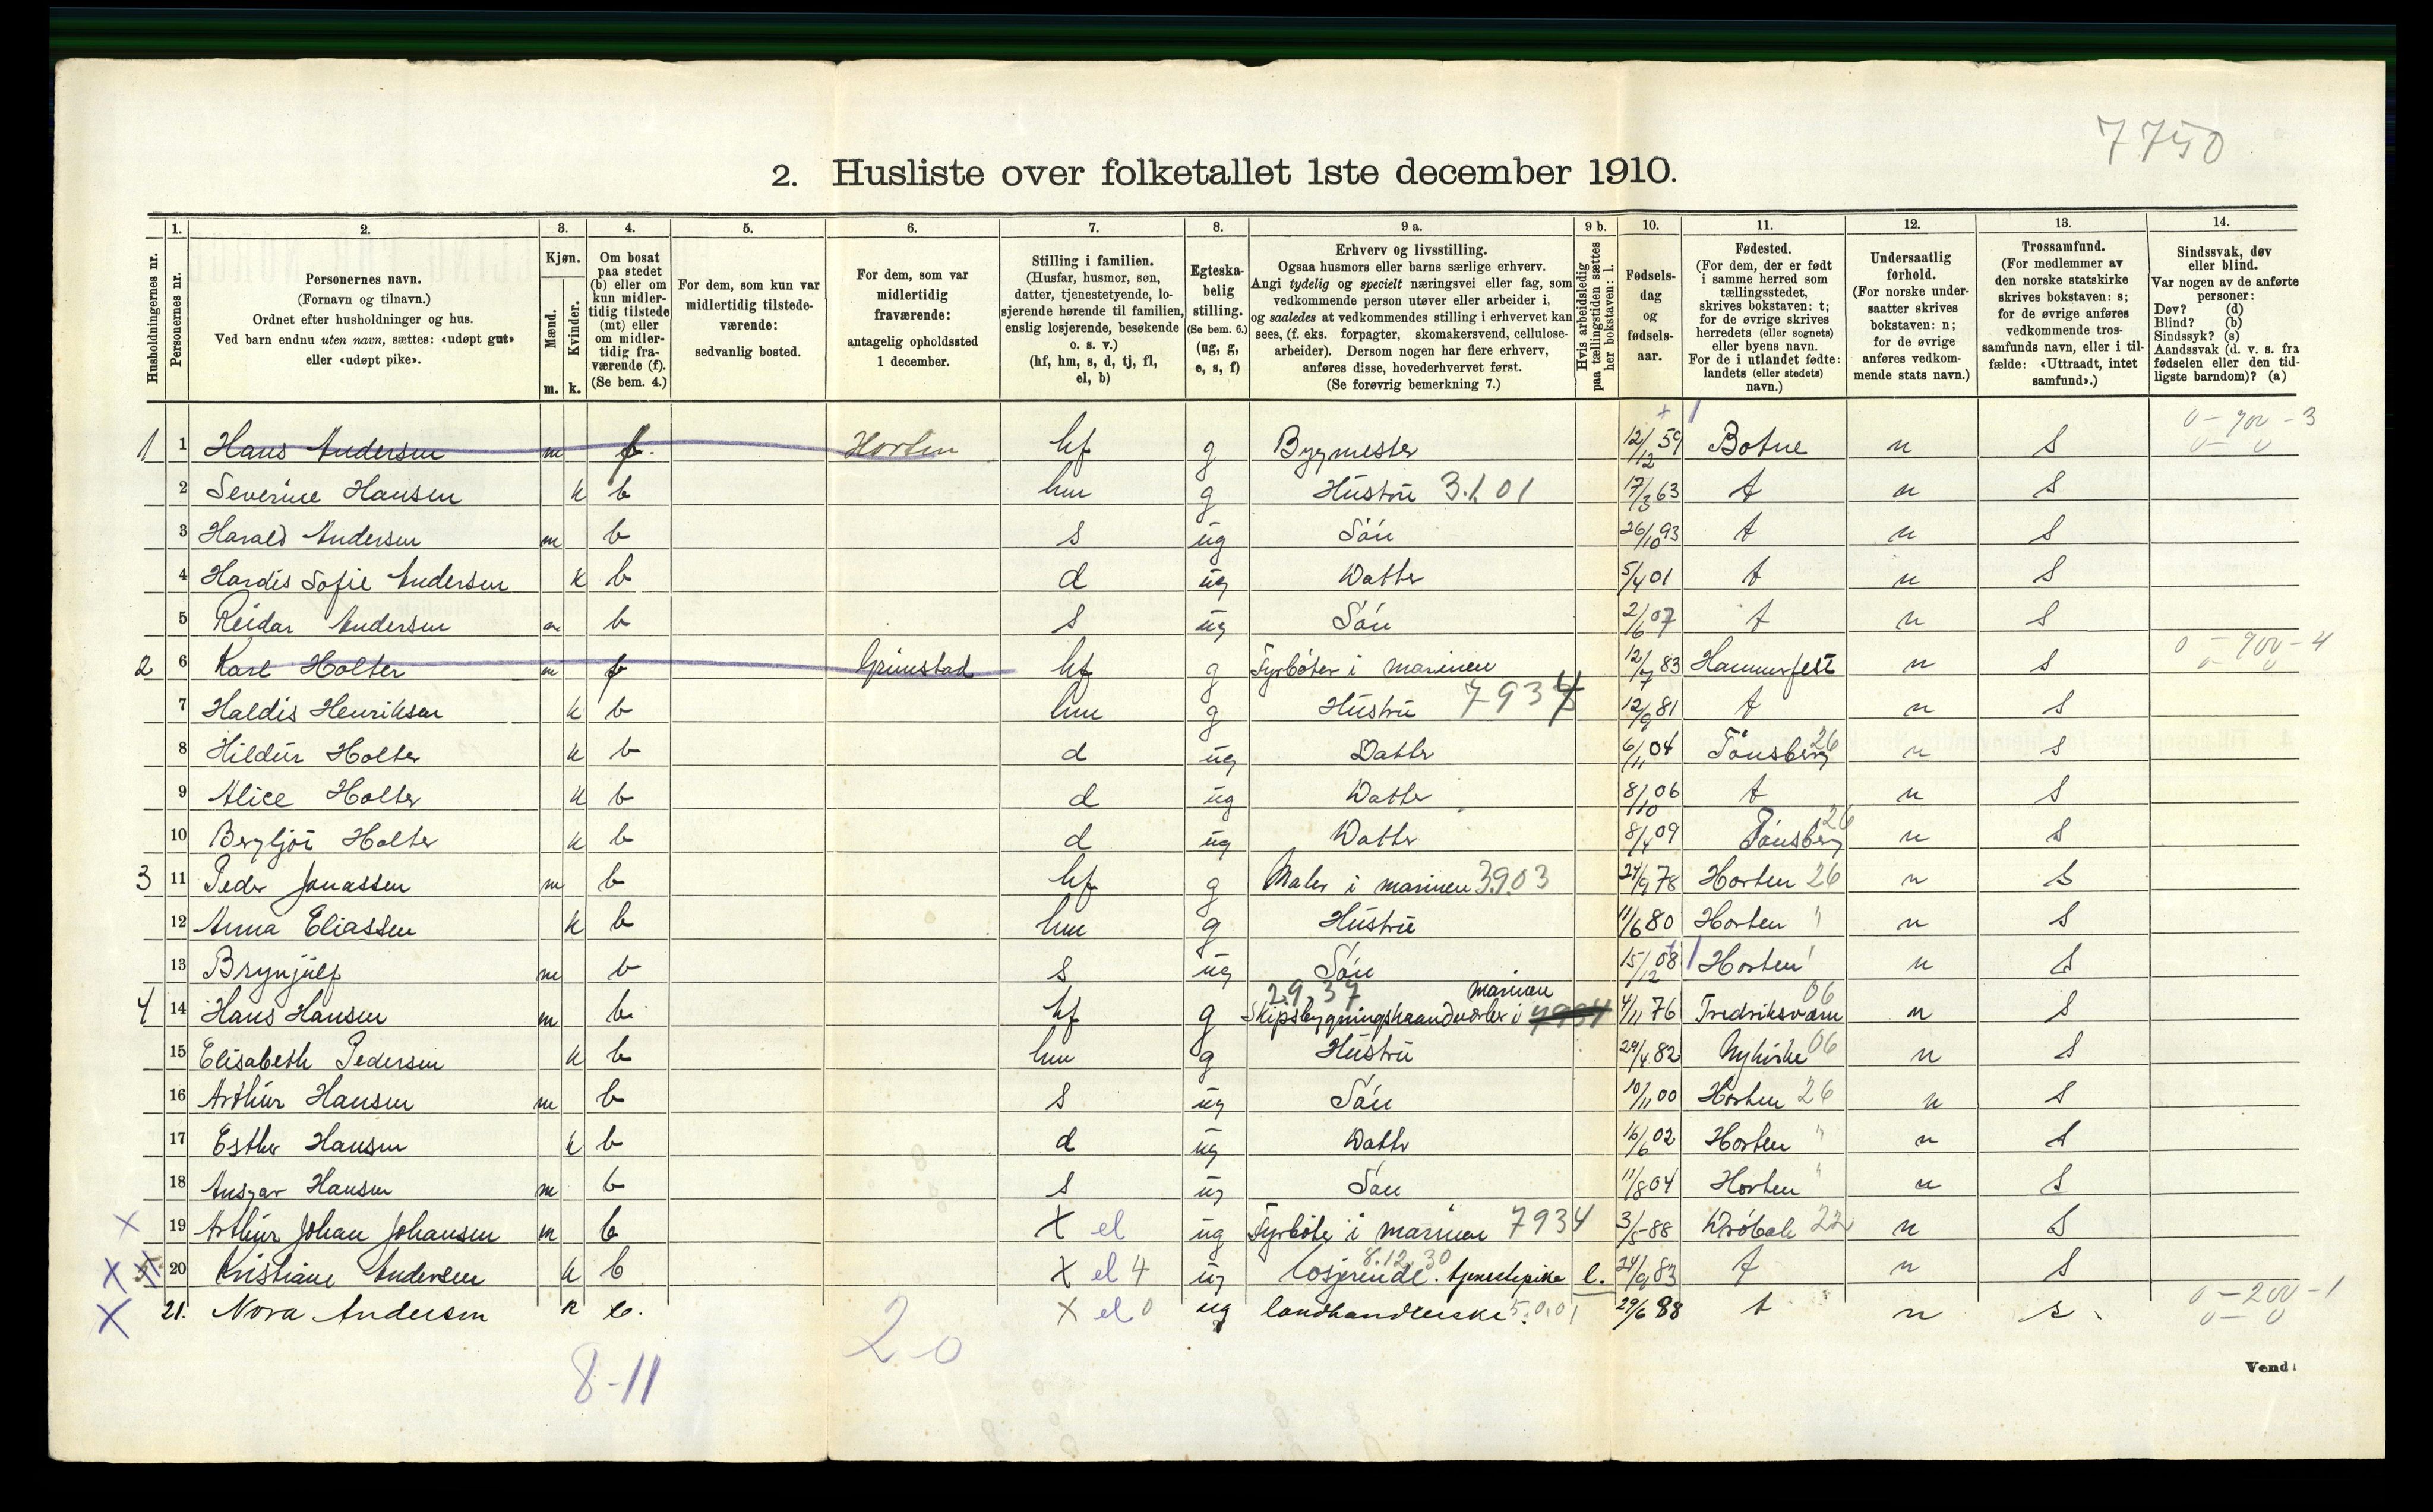 7750
2. Husliste over folketallet 1ste december 1910.
Husholdningernes nr.
1. Personernes nr.
2. Personernes navn. (Fornavn og tilnavn.) Ordnet efter husholdninger og hus. Ved barn endnu uten navn, sættes: «udøpt gut» eller «udøpt pike».
3. Kjøn. Mænd. m. Kvinder. k.
4. Om bosat paa stedet (b) eller om kun midlertidig tilstede (mt) eller om midlertidig fraværende (f). (Se bem. 4.)
5. For dem, som kun var midlertidig tilstedeværende: sedvanlig bosted.
6. For dem, som var midlertidig fraværende: antagelig opholdssted 1 december.
7. Stilling i familien. (Husfar, husmor, søn, datter, tjenestetyende, losjerende hørende til familien, enslig losjerende, besøkende o. s. v.) (hf, hm, s, d, tj, fl, el, b)
8. Egteskabelig stilling. (Se bem. 6.) (ug, g, e, s, f)
9 a. Erhverv og livsstilling. Ogsaa husmors eller barns særlige erhverv. Angi tydelig og specielt næringsvei eller fag, som vedkommende person utøver eller arbeider i, og saaledes at vedkommendes stilling i erhvervet kan sees, (f. eks. forpagter, skomakersvend, cellulose-arbeider). Dersom nogen har flere erhverv, anføres disse, hovederhvervet først. (Se forøvrig bemerkning 7.)
9 b. Hvis arbeidsledig paa tællingstiden sættes her bokstaven: l.
10. Fødselsdag og fødselsaar.
11. Fødested. (For dem, der er født i samme herred som tællingsstedet, skrives bokstaven: t; for de øvrige skrives herredets (eller sognets) eller byens navn. For de i utlandet fødte: landets (eller stedets) navn.)
12. Undersaatlig forhold. (For norske undersaatter skrives bokstaven: n; for de øvrige anføres vedkommende stats navn.)
13. Trossamfund. (For medlemmer av den norske statskirke skrives bokstaven: s; for de øvrige anføres vedkommende trossamfunds navn, eller i tilfælde: «Uttraadt, intet samfund».)
14. Sindssvak, døv eller blind. Var nogen av de anførte personer: Døv? (d) Blind? (b) Sindssyk? (s) Aandssvak (d. v. s. fra fødselen eller den tidligste barndom)? (a)
1 1 Hans Andersen m f. Horten hf g Bygmester 12/12 59 Botne n S 0 - 900 - 3 0 - 0
2 Severine Hansen k b hm g Hustru 3.1.01 17/3 63 t n S
3 Harald Andersen m b s ug Søn 26/10 93 t n S
4 Hardis Sofie Andersen k b d ug Datter 5/4 01 t n S
5 Reidar Andersen m b s ug Søn 2/6 07 t n S
2 6 Karl Holter m f Grimstad hf g Fyrbøter i marinen 12/7 83 Hammerfest n S 0 - 900 - 4 0 - 0
7 Haldis Henriksen k b hm g Hustru 7934 12/9 81 t n S
8 Hildur Holter k b d ug Datter 6/11 04 Tønsberg 26 n S
9 Alice Holter k b d ug Datter 8/10 06 t n S
10 Bergljot Holter k b d ug Datter 8/4 09 Tønsberg 26 n S
3 11 Peder Jonassen m b hf g Maler i marinen 3903 24/9 78 Horten 26 n S
12 Anna Eliassen k b hm g Hustru 11/6 80 Horten " n S
13 Brynjulf m b s ug Søn 15/12 08 Horten n S
4 14 Hans Hansen m b. hf g Skipsbygningshaandverker i marinen 29.37 7934 4/11 76 Fredriksværn 06 n S
15 Elisabeth Pedersen k b hm g Hustru 29/4 82 Nykirke 06 n S
16 Arthur Hansen m b s ug Søn 10/11 00 Horten 26 n S
17 Esther Hansen k b d ug Datter 16/6 02 Horten " n S
18 Ansgar Hansen m b s ug Søn 11/8 04 Horten " n S
X 19 Arthur Johan Johansen m b X el ug Fyrbøter i marinen 7934 3/5 88 Drøbak 22 n S
X X 20 Kristiane Andersen k b X el 4 ug losjerende. tjenestepike 8.12.30 l. 24/9 83 t n S
X 21. Nora Andersen k b. X el 0 ug landhandlerske. 5.0.01 29/6 88 t n s. 0 - 200 - 1 0 - 0
8-11
20
Vend!